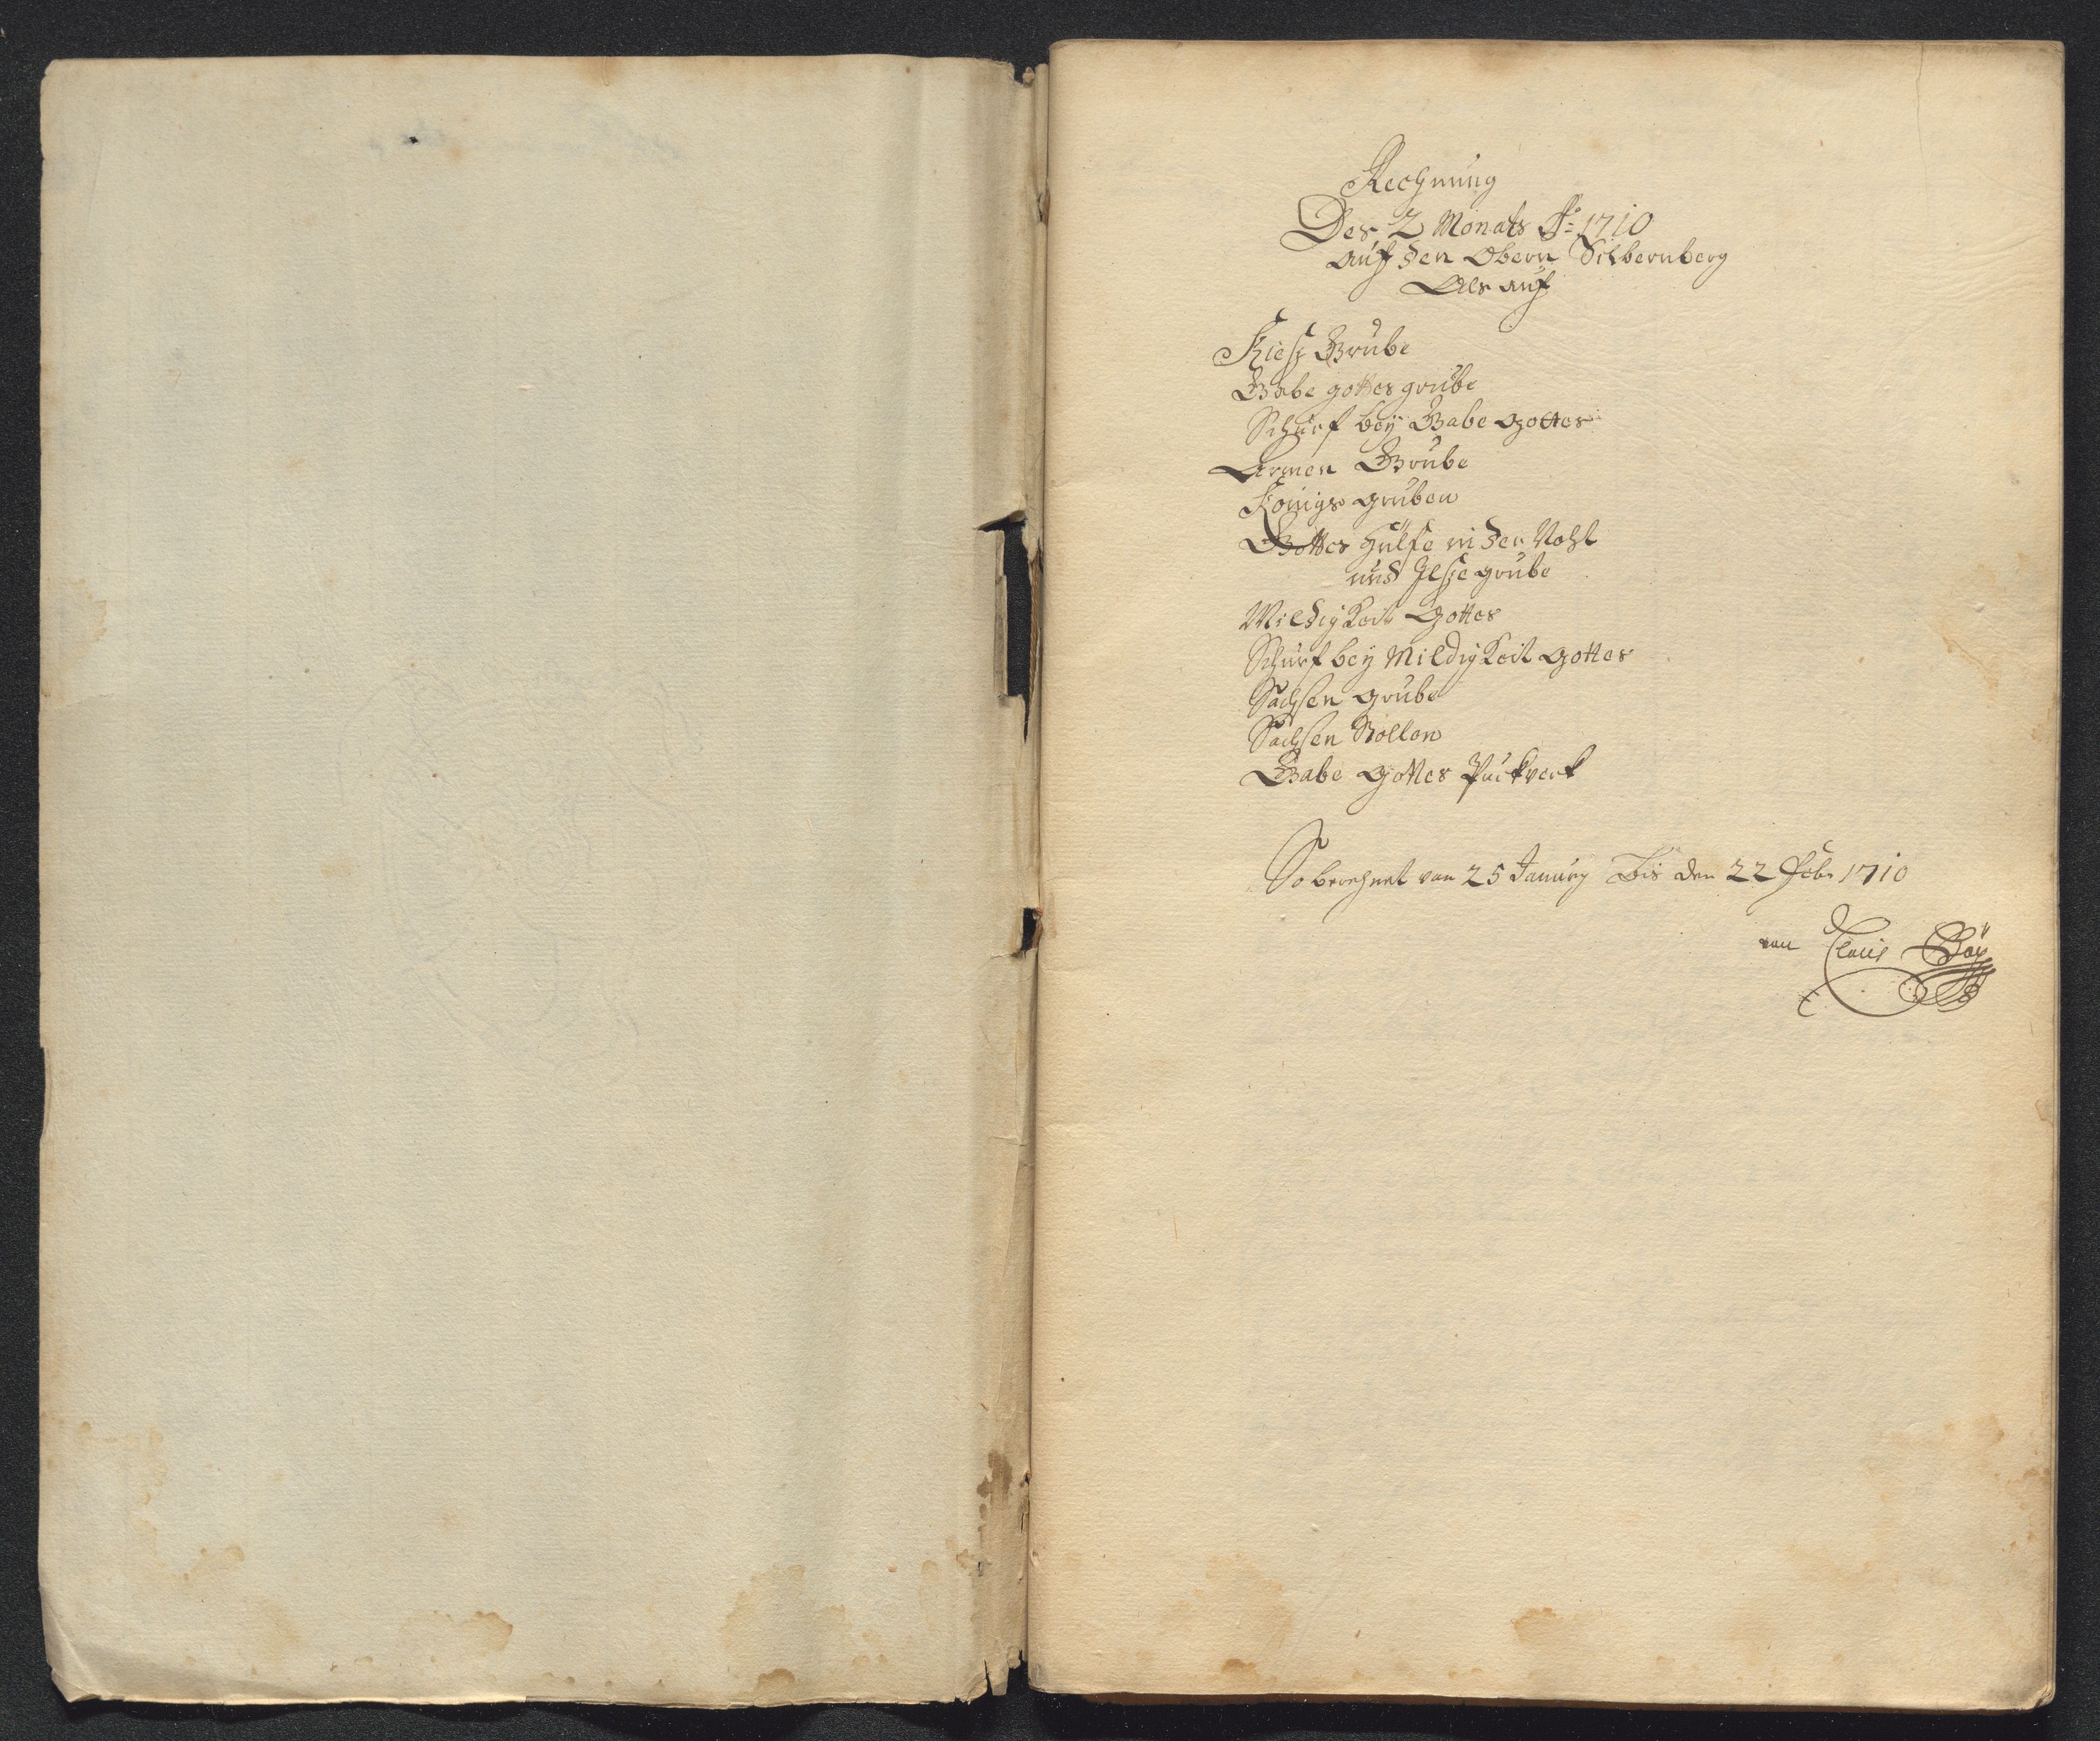 Rechnung
Des 2 Monats Ao 1710
auf den Obern Silbernberg
Als auf
Kiesz Grube
Gabe gottes grube
Schurf beÿ Gabe gottes
Armen Grube
Königs gruben
Gottes Hülfe in der Noht
und Ilsze grube
Mildigkeit Gottes
Schurf beÿ Mildigkeit gottes
Sachsen grube
Sachsen Stollen
Gabe Gottes Puckverk
So berechnet van 25 Januarÿ Bis den 22 Febr 1710
van Claus